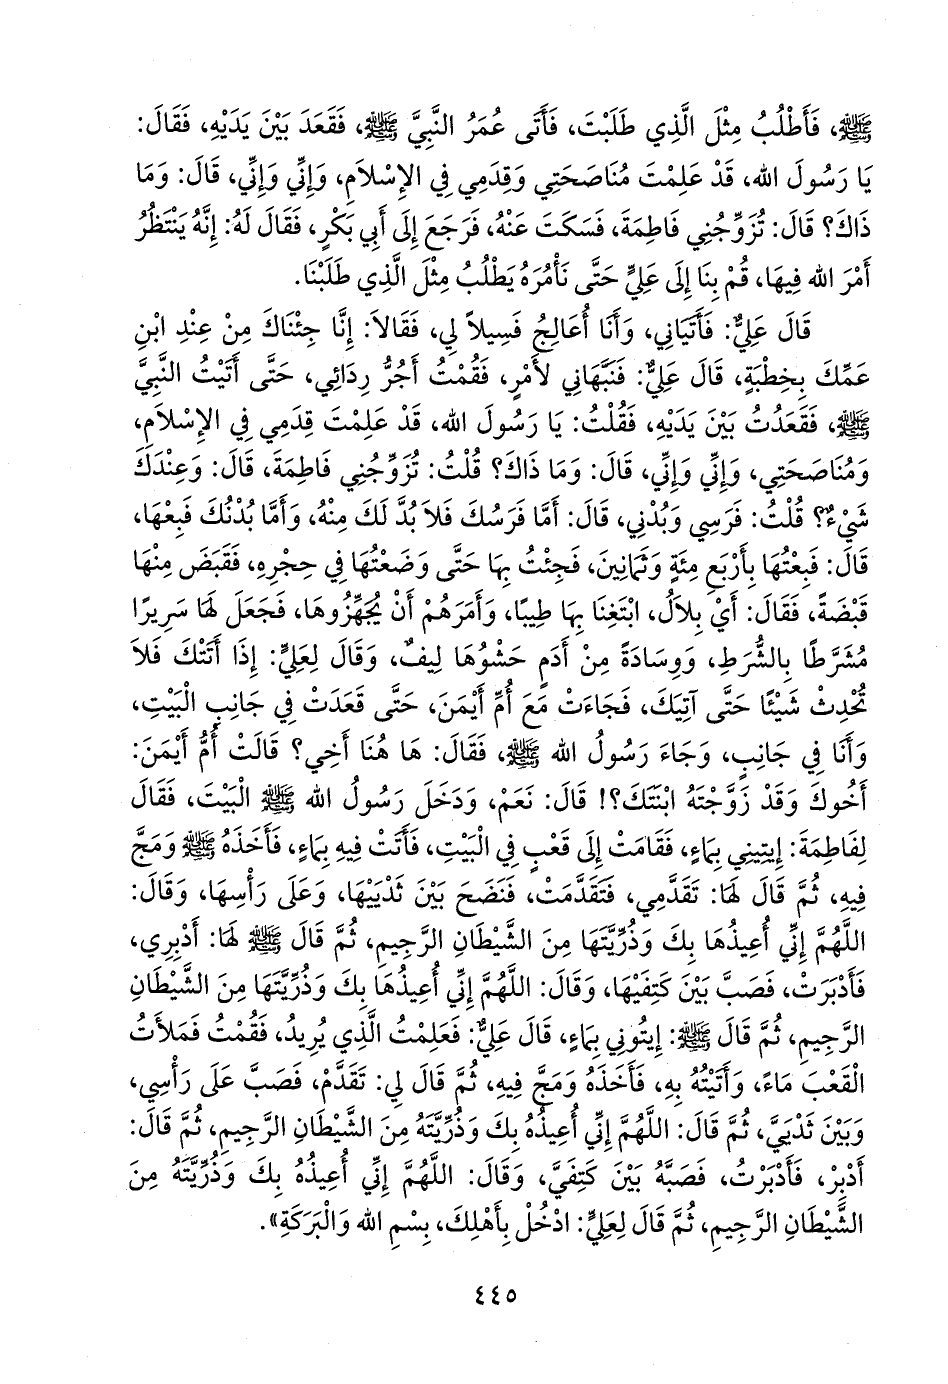 ﷺ، فَأَطْلُبُ مِثْلَ الَّذِي طَلَبْتَ، فَأَتَى عُمَرُ النَّبِيَّ ﷺ، فَقَعَدَ بَيْنَ يَدَيْهِ، فَقَالَ:
يَا رَسُولَ الله، قَدْ عَلِمْتَ مُنَاصَحَتِي وَقِدَمِي فِي الإِسْلاَمِ، وَإِنِّي وَإِنِّي، قَالَ: وَمَا
ذَاكَ؟ قَالَ: تُزَوِّجُنِي فَاطِمَةَ، فَسَكَتَ عَنْهُ، فَرَجَعَ إِلَى أَبِي بَكْرٍ، فَقَالَ لَهُ: إِنَّهُ يَنْتَظُرُ
أَمْرَ الله فِيهَا، قُمْ بِنَا إِلَى عَلِيٍّ حَتَّى نَأْمُرَهُ يَطْلُبُ مِثْلَ الَّذِي طَلَبْنَا.
قَالَ عَلِيٌّ: فَأَتَيَانِي، وَأَنَا أُعَالِجُ فَسِيلاً لِي، فَقَالاَ: إِنَّا جِئْنَاكَ مِنْ عِنْدِ ابْنِ
عَمِّكَ بِخِطْبَةٍ، قَالَ عَلِيٌّ: فَنَبَّهَانِي لأَمْرٍ، فَقُمْتُ أَجُرُّ رِدَائِي، حَتَّى أَتَيْتُ النَّبِيَّ
ﷺ، فَقَعَدْتُ بَيْنَ يَدَيْهِ، فَقُلْتُ: يَا رَسُولَ الله، قَدْ عَلِمْتَ قِدَمِي فِي الإِسْلاَمِ،
وَمُنَاصَحَتِي، وَإِنِّي وَإِنِّي، قَالَ: وَمَا ذَاكَ؟ قُلْتُ: تُزَوِّجُنِي فَاطِمَةَ، قَالَ: وَعِنْدَكَ
شَيْءٌ؟ قُلْتُ: فَرَسِي وَبُدْنِي، قَالَ: أَمَّا فَرَسُكَ فَلاَ بُدَّ لَكَ مِنْهُ، وَأَمَّا بُدْنُكَ فَبِعْهَا،
قَالَ: فَبِعْتُهَا بِأَرْبَعِ مِئَةٍ وَثَمَانِينَ، فَجِئْتُ بِهَا حَتَّى وَضَعْتُهَا فِي حِجْرِهِ، فَقَبَضَ مِنْهَا
قَبْضَةً، فَقَالَ: أَيْ بِلاَلُ، ابْتَغِنَا بِهَا طِيبًا، وَأَمَرَهُمْ أَنْ يُجَهِّزُوهَا، فَجَعَلَ لَهَا سَرِيرًا
مُشَرَّطًا بِالشُّرَطِ، وَوِسَادَةً مِنْ أَدَمٍ حَشْوُهَا لِيفٌ، وَقَالَ لِعَلِيٍّ: إِذَا أَتَتْكَ فَلاَ
تُحْدِثْ شَيْئًا حَتَّى آتِيَكَ، فَجَاءَتْ مَعَ أُمِّ أَيْمَنَ، حَتَّى قَعَدَتْ فِي جَانِبِ الْبَيْتِ،
وَأَنَا فِي جَانِبٍ، وَجَاءَ رَسُولُ الله ﷺ، فَقَالَ: هَا هُنَا أَخِي؟ قَالَتْ أُمُّ أَيْمَنَ:
أَخُوكَ وَقَدْ زَوَّجْتَهُ ابْنَتَكَ؟! قَالَ: نَعَمْ، وَدَخَلَ رَسُولُ الله ﷺ الْبَيْتَ، فَقَالَ
لِفَاطِمَةَ: إِيتِينِي بِمَاءٍ، فَقَامَتْ إِلَى قَعْبٍ فِي الْبَيْتِ، فَأَتَتْ فِيهِ بِمَاءٍ، فَأَخَذَهُ ﷺ وَمَجَّ
فِيهِ، ثُمَّ قَالَ لَهَا: تَقَدَّمِي، فَتَقَدَّمَتْ، فَنَضَحَ بَيْنَ ثَدْيَيْهَا، وَعَلَى رَأْسِهَا، وَقَالَ:
اللَّهُمَّ إِنِّي أُعِيذُهَا بِكَ وَذُرِّيَّتَهَا مِنَ الشَّيْطَانِ الرَّجِيمِ، ثُمَّ قَالَ ﷺ لَهَا: أَدْبِرِي،
فَأَدْبَرَتْ، فَصَبَّ بَيْنَ كَتِفَيْهَا، وَقَالَ: اللَّهُمَّ إِنِّي أُعِيذُهَا بِكَ وَذُرِّيَّتَهَا مِنَ الشَّيْطَانِ
الرَّجِيمِ، ثُمَّ قَالَ ﷺ: إِيتُونِي بِمَاءٍ، قَالَ عَلِيٌّ: فَعَلِمْتُ الَّذِي يُرِيدُ، فَقُمْتُ فَمَلأْتُ
الْقَعْبَ مَاءً، وَأَتَيْتُهُ بِهِ، فَأَخَذَهُ وَمَجَّ فِيهِ، ثُمَّ قَالَ لِي: تَقَدَّمْ، فَصَبَّ عَلَى رَأْسِي،
وَبَيْنَ ثَدْيَيَّ، ثُمَّ قَالَ: اللَّهُمَّ إِنِّي أُعِيذُهُ بِكَ وَذُرِّيَّتَهُ مِنَ الشَّيْطَانِ الرَّجِيمِ، ثُمَّ قَالَ:
أَدْبِرْ، فَأَدْبَرْتُ، فَصَبَّهُ بَيْنَ كَتِفَيَّ، وَقَالَ: اللَّهُمَّ إِنِّي أُعِيذُهُ بِكَ وَذُرِّيَّتَهُ مِنَ
الشَّيْطَانِ الرَّجِيمِ، ثُمَّ قَالَ لِعَلِيٍّ: ادْخُلْ بِأَهْلِكَ، بِسْمِ الله وَالْبَرَكَةِ».
٤٤٥